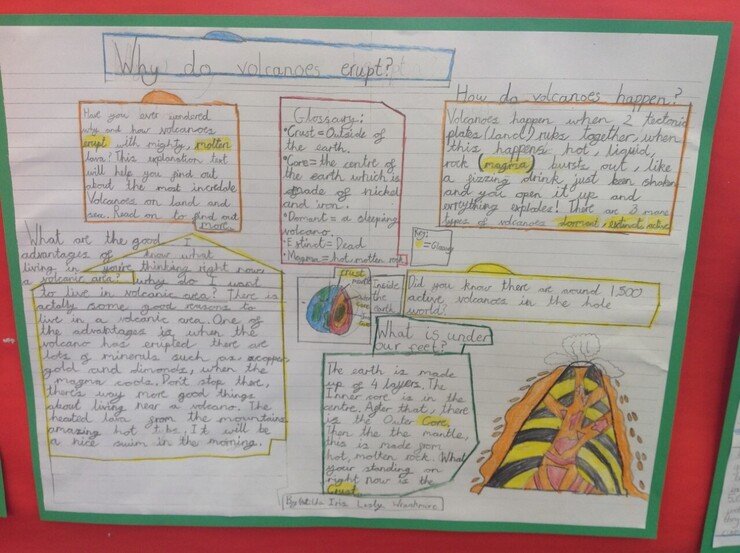 Why do volcanoes erupt?
Have you ever wondered
why and how volcanoes
erupt with mighty, molten
lava? This explanation text
will help you find out
about the most incredble
Volcanoes on land and
sea. Read on to find out
more.
Glossary:
•Crust = Outside of
the earth.
•Core = the centre of
the earth which is
made of nickel
and iron.
•Domant = a sleeping
volcano.
•Estinct = Dead
•Magma = hot molten rock
How do volcanoes happen?
Volcanoes happen when 2 tectonic
plates (land) rubs together, when
this happens hot, liquid,
rock (magma) bursts out, like
a fizzing drink just been shaken
and you open it up and
everything explodes! There are 3 more
types of volcanoes dormant, extinct, active
Key:
=Glossary
What are the good
advantages of
living in
a volcanic area?
I
know what
you're thinking right now
why do I want
to live in volcanic area? There is
actally some good reasons to
live in a volcanic area. One of
the advantages is when the
volcano has erupted there are
lots of minerals such as copper
gold and dimonds, when the
magma cools. Dont stop there,
there's way more good things
about living near a volcano. The
heated lava from the mountains
amazing hot tubs, It will be
a nice swim in the morning.
crust
Inside
the
earth
Did you know there are around 1,500
active volcanoes in the hole
world?
What is under
our feet?
The earth is made
up of 4 layers. The
Inner core is in the
centre. After that, there
is the Outer Core,
Then the the mantle,
this is made from
hot, molten rock. What
your standing on
right now is the
Crust.
By Iris Lesly